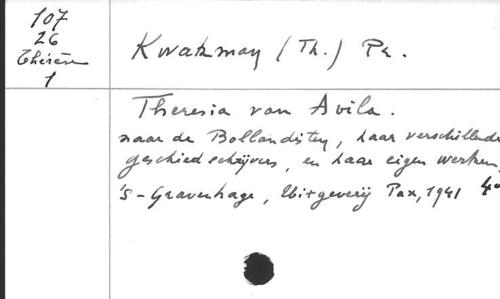 107
26
Thérèse
1
Kwakman (Th.) Pr.
Theresia van Avila.
naar de Bollandisten, haar verschillende
geschiedschrijvers, en haar eigen werken,
's-Gravenhage, Uitgeverij Pax, 1941 4°